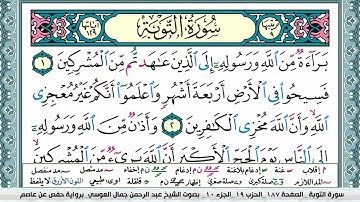 سُورَةُ التَّوْبَةِ
بَرَآءَةٌ مِّنَ ٱللَّهِ وَرَسُولِهِۦٓ إِلَى ٱلَّذِينَ عَـٰهَدتُّم مِّنَ ٱلْمُشْرِكِينَ ١
فَسِيحُوا۟ فِى ٱلْأَرْضِ أَرْبَعَةَ أَشْهُرٍ وَٱعْلَمُوٓا۟ أَنَّكُمْ غَيْرُ مُعْجِزِى
ٱللَّهِ وَأَنَّ ٱللَّهَ مُخْزِى ٱلْكَـٰفِرِينَ ٢ وَأَذَٰنٌ مِّنَ ٱللَّهِ وَرَسُولِهِۦٓ
إِلَى ٱلنَّاسِ يَوْمَ ٱلْحَجِّ ٱلْأَكْبَرِ أَنَّ ٱللَّهَ بَرِىٓءٌ مِّنَ ٱلْمُشْرِكِينَ
سورة التوبة - الصفحة ١٨٧ الحزب ١٩ الجزء ١٠ - بصوت الشيخ عبد الرحمن جمال العوسي - برواية حفص عن عاصم